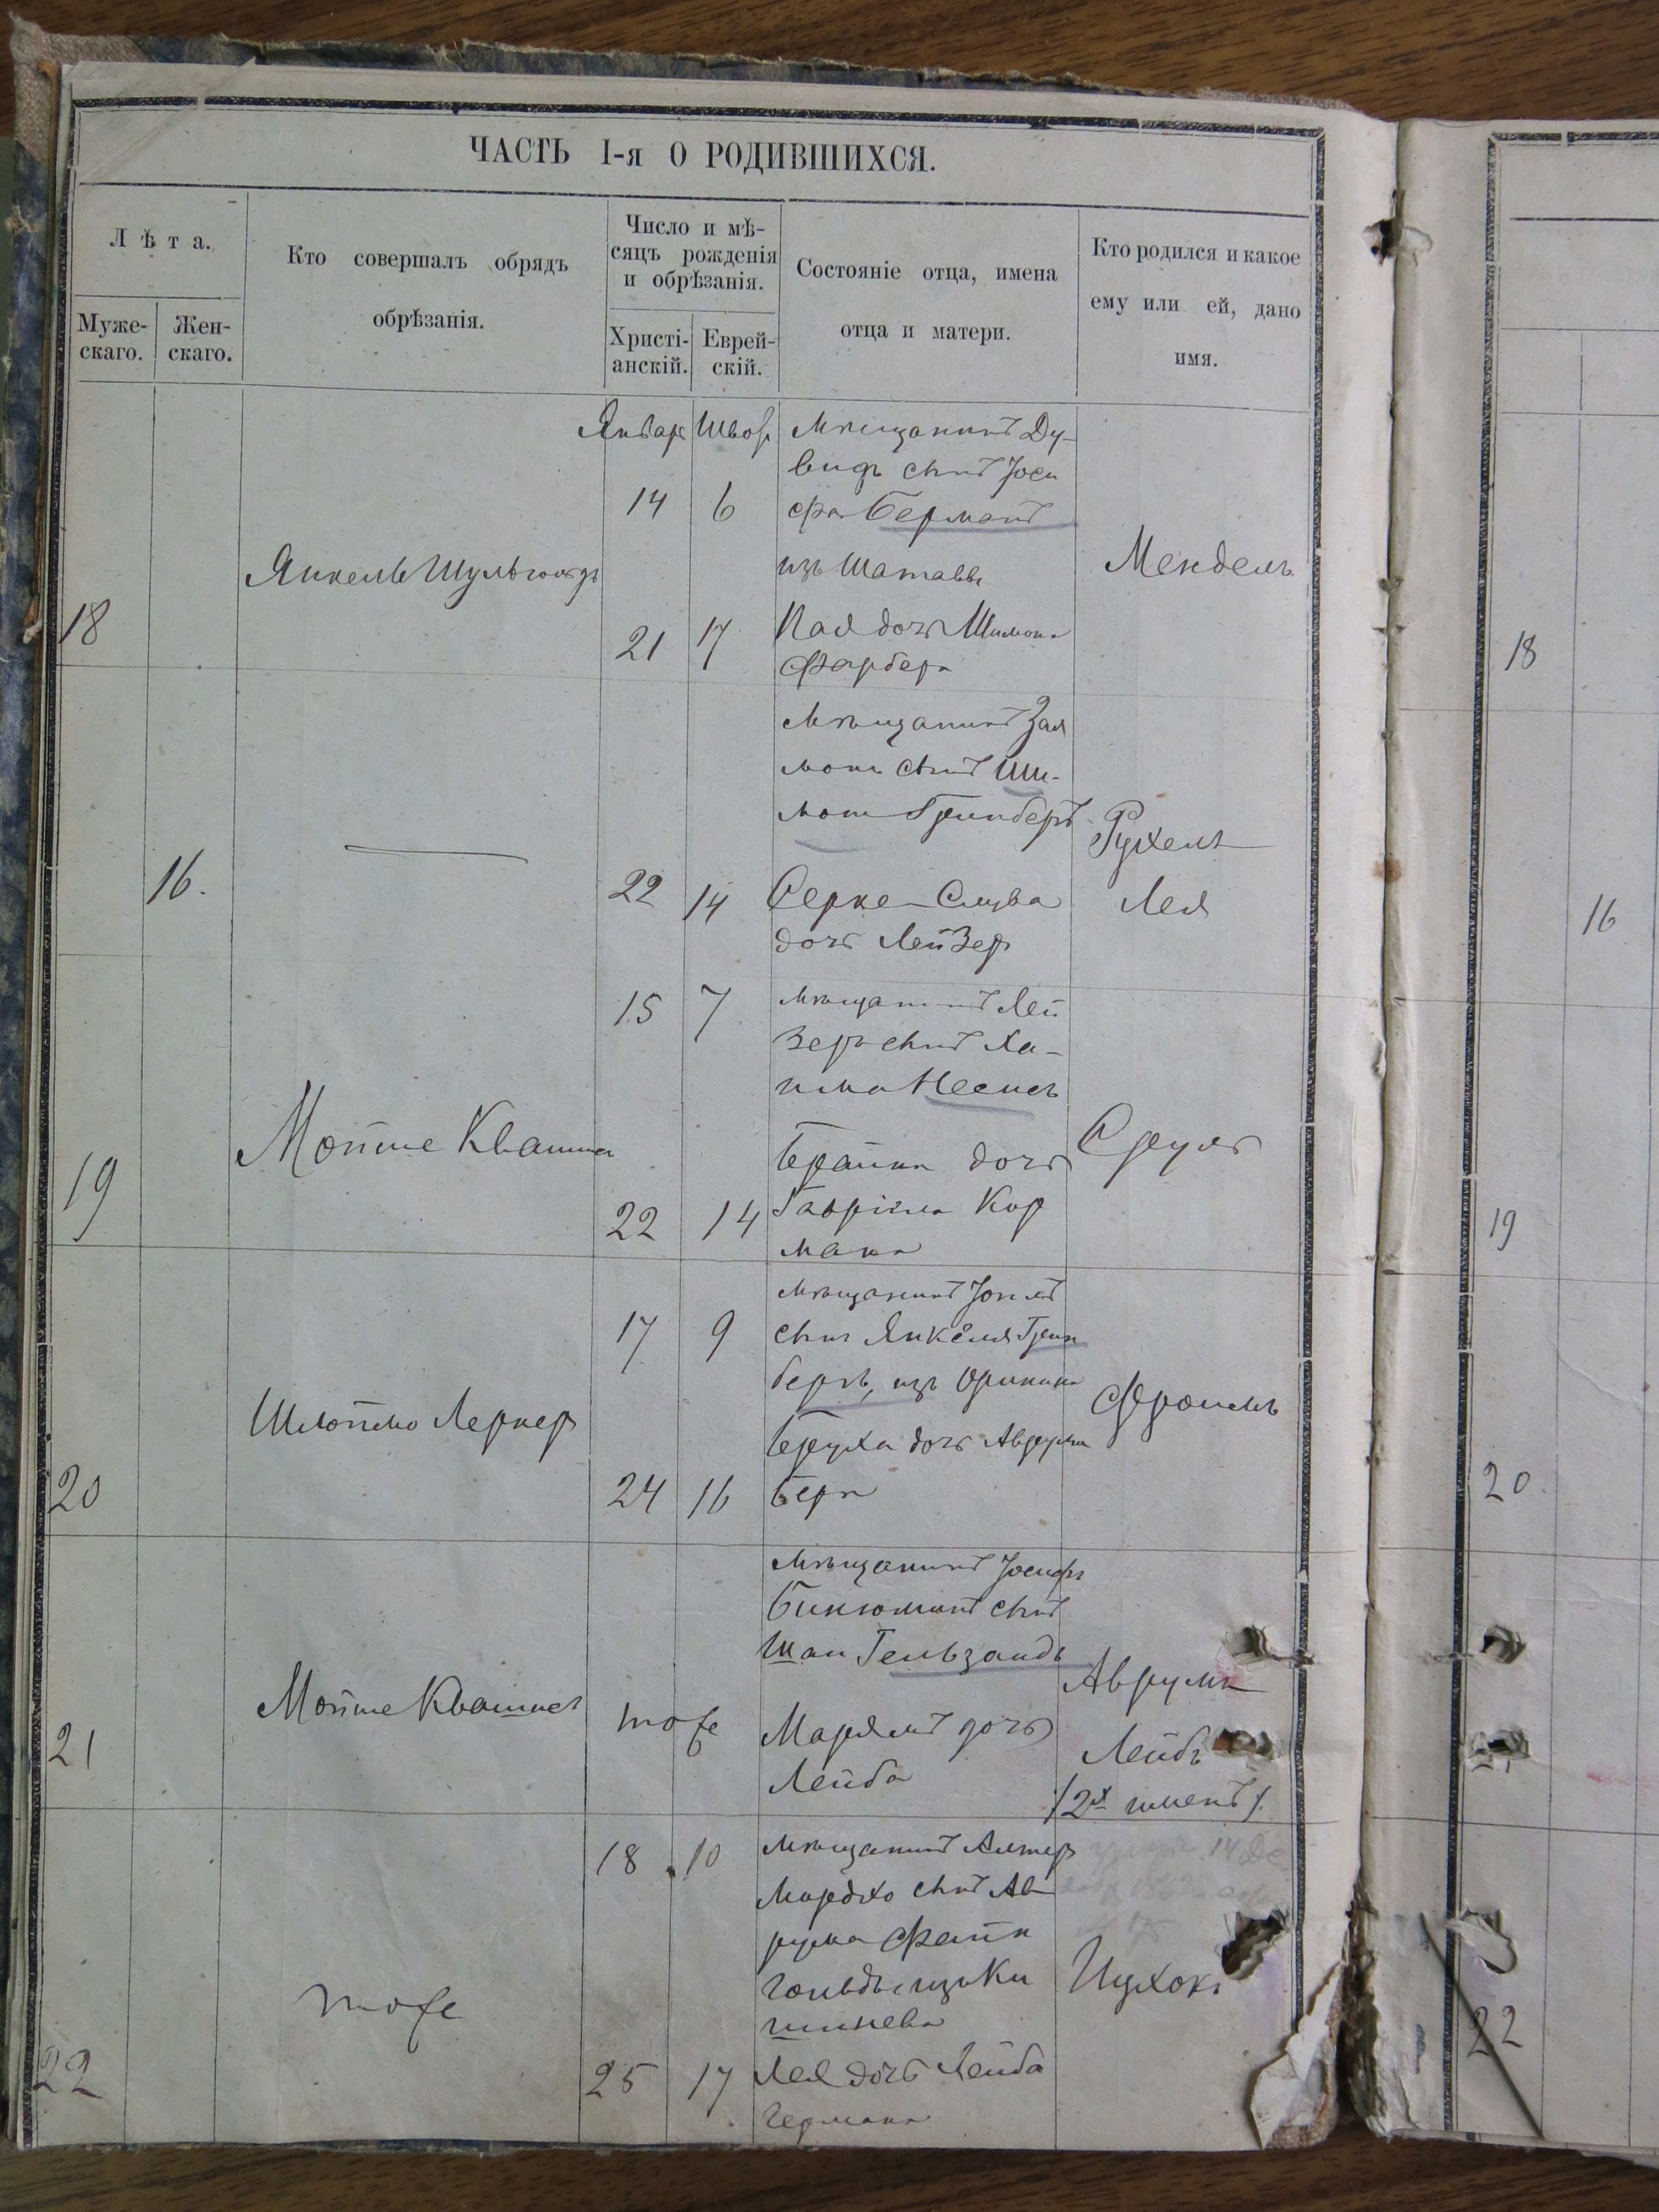 ЧАСТЬ I-я О РОДИВШИХСЯ.
Лѣта.
Муже-
скаго.
Жен-
скаго.
Кто совершалъ обрядъ
обрѣзанія.
Число и мѣ-
сяцъ рожденія
и обрѣзанія.
Христі-
анскій.
Еврей-
скій.
Состояніе отца, имена
отца и матери.
Кто родился и какое
ему или ей, дано
имя.
18
Янкель Шульгольдъ
Январ Шват
14 6
21 17
Мещанинъ Ду-
видъ сынъ Іоси
фа Берманъ
изъ Шатавы
дочь Шимона
Фарбера
Мендель
18
16.
22 14
Мѣщанинъ Зал
монъ сынъ Ши-
мона Гринберъ
Серке-Слува
дочь Лейзер
Рухель
Лея
16
19
Мойше Квашна
15 7
22 14
мѣщанинъ Лей
зеръ сынъ Ха-
има Несисъ
Брайна дочь
Гавріила Кор
мана
Сруль
19
20
Шлоймо Лернер
17 9
24 16
мѣщанинъ Іоиль
сынъ Янкеля Грин
бергъ, изъ Оринина
Бруха дочь Аврума
Бера
Фроимъ
20
21
Мойше Квашнa
тоже
мѣщанинъ Іосифъ
Бинюминъ сынъ
Гельзандъ
Марямъ дочь
Лейба
Аврумъ
Лейбъ
/2х именъ/.
22
тоже
18 10
25 17
мѣщанинъ Алтер
Мордхо сынъ Ав
рума Файн
гольдъ изъ Ки
шинева
Лея дочь Лейба
Германа
14 Де
Ицхокъ
22